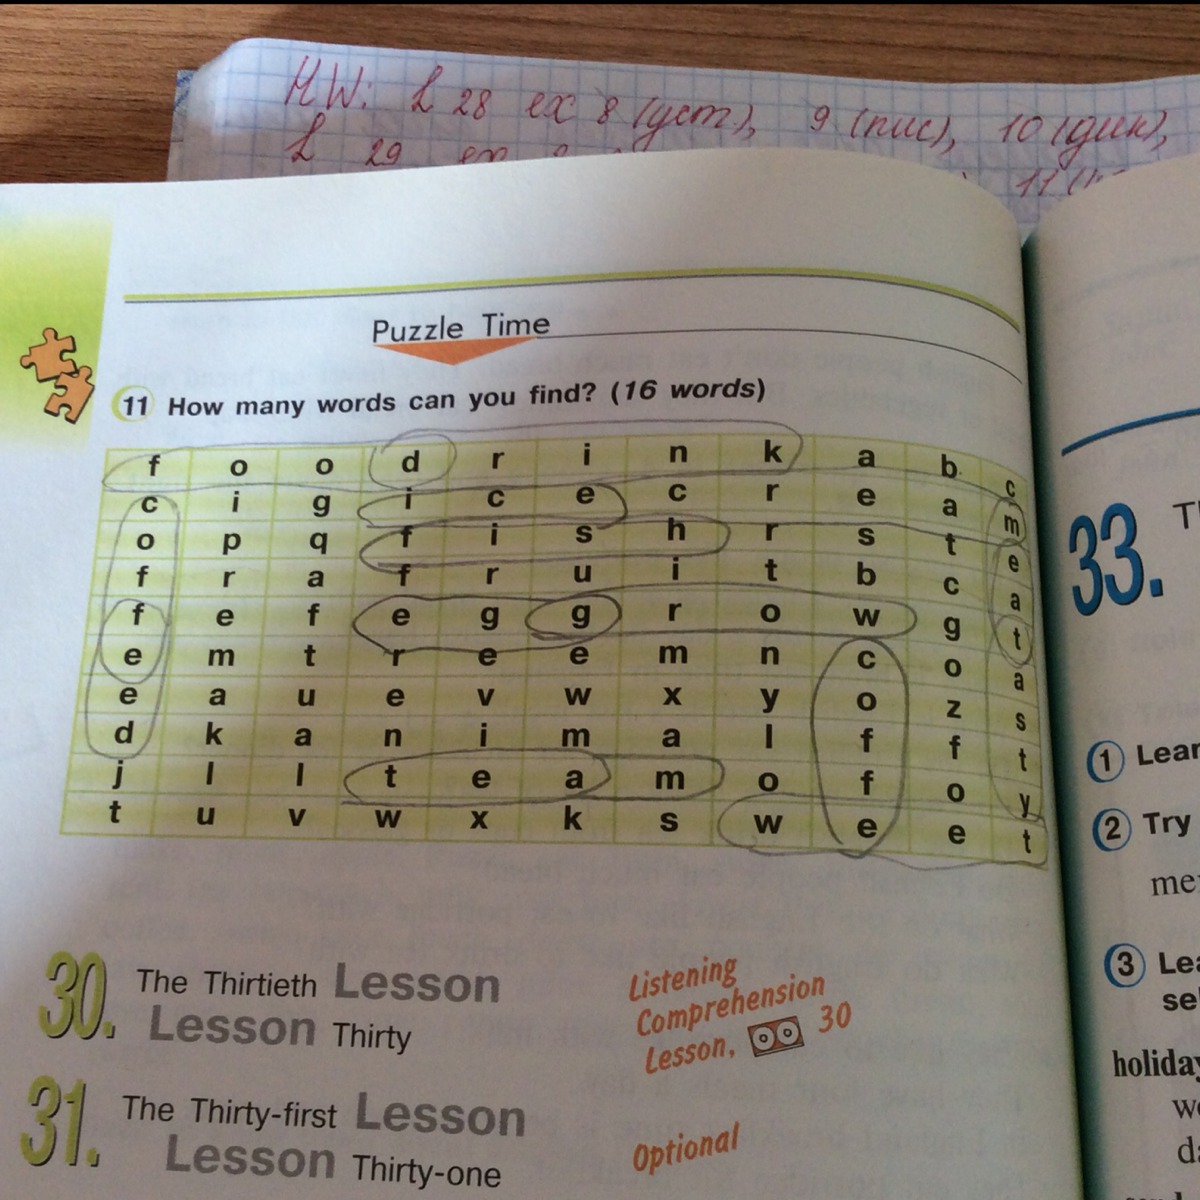 HW: L 28 ex 8 (уст), 9 (пис), 10 (дик),
L 29 ex
11
Puzzle Time
11 How many words can you find? (16 words)
f o o d r i n k a b c
c i g i c e c r e a m
o p q f i s h r s t e
f r a f r u i t b c a
f e f e g g r o w g t
e m t r e e m n c o a
e a u e v w x y o z s
d k a n i m a l f f t
j l l t e a m o f o y
t u v w x k s w e e t
30. The Thirtieth Lesson
Lesson Thirty
Listening
Comprehension
Lesson, 30
31. The Thirty-first Lesson
Lesson Thirty-one
Optional
33.
1
2 Try
3
holiday